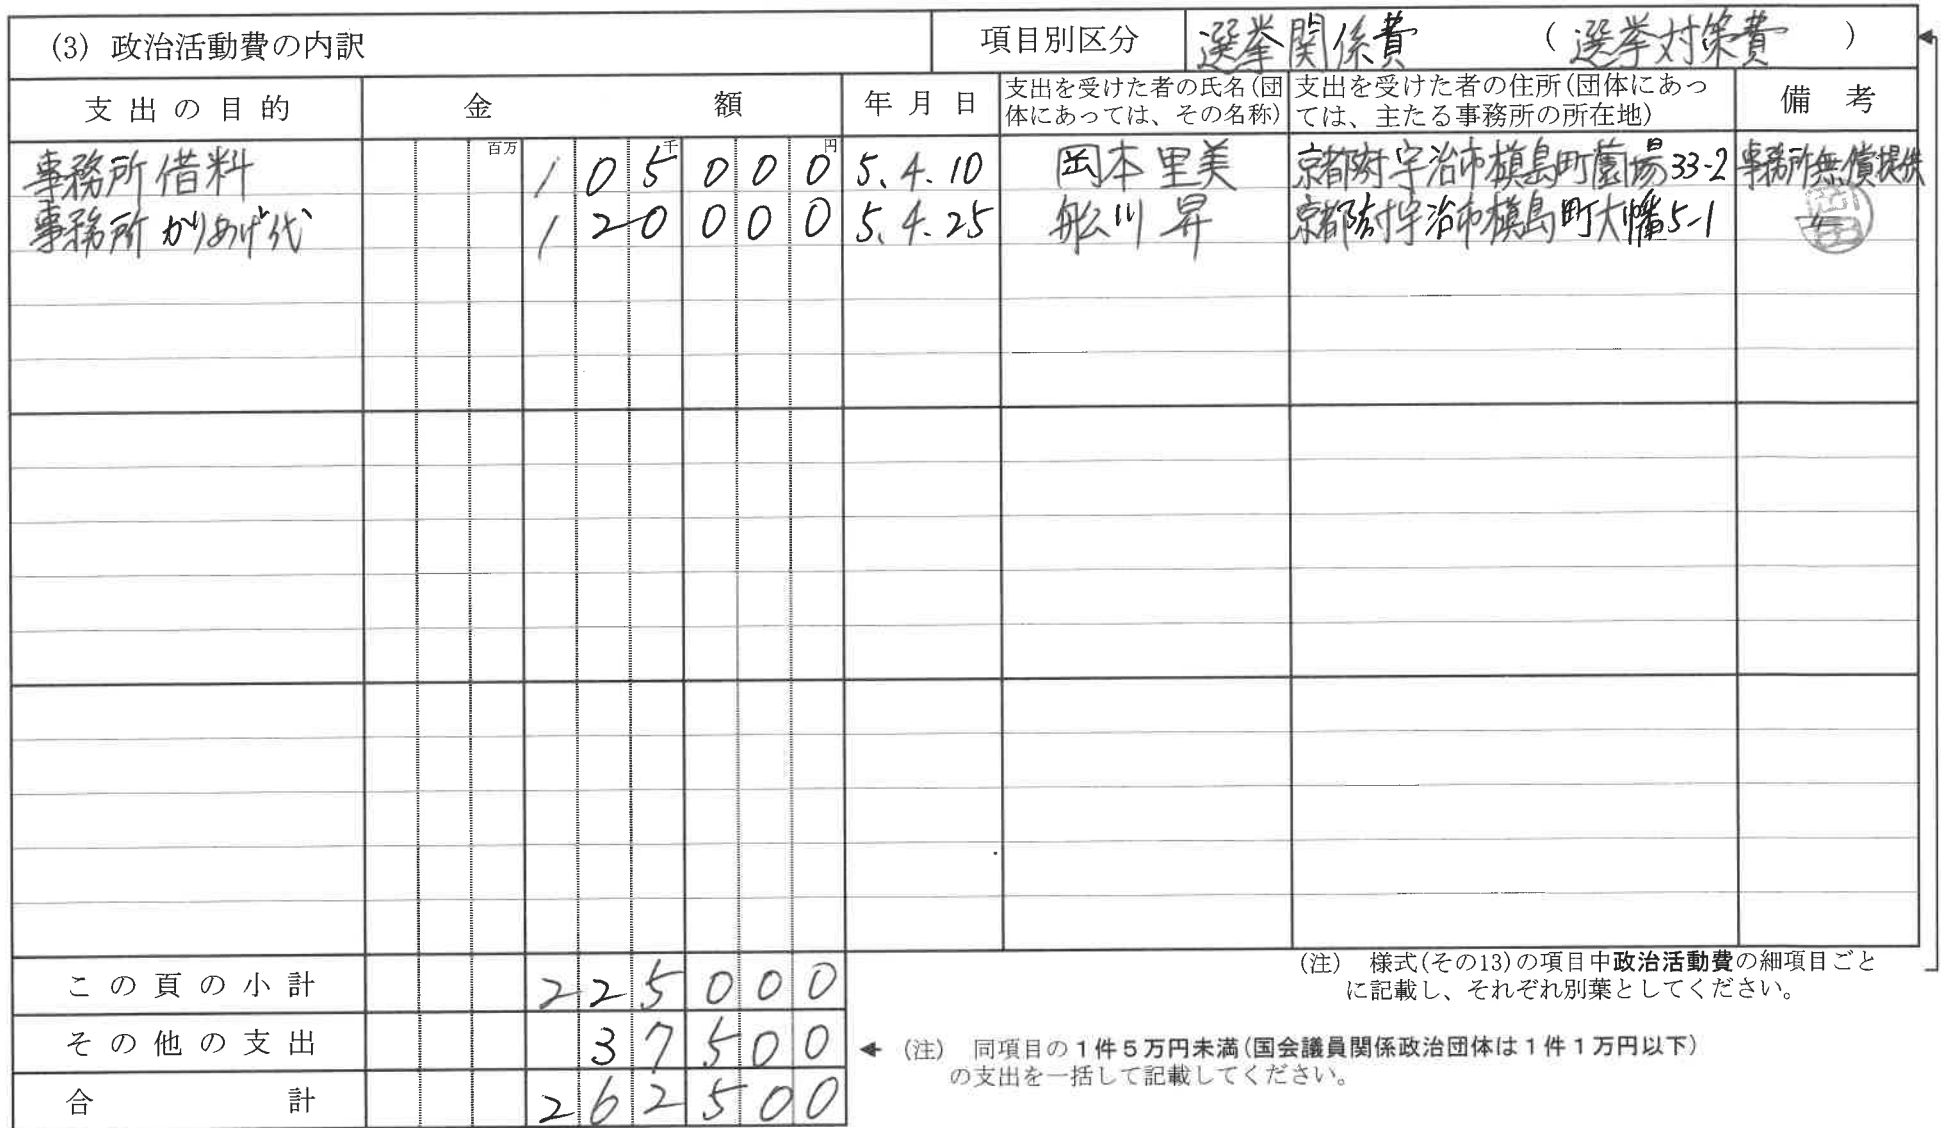 (3) 政治活動費の内訳 項目別区分 選挙関係費 ( 選挙対策費 )
支出の目的 金額 年月日 支出を受けた者の氏名(団体にあっては、その名称) 支出を受けた者の住所(団体にあっては、主たる事務所の所在地) 備考
百万 千 円
事務所借料 105000 5.4.10 岡本里美 京都府宇治市槙島町薗場33-2 事務所無償提供
事務所かりあげ代 120000 5.4.25 舩川昇 京都府宇治市槙島町大幡5-1
この頁の小計 225000
その他の支出 37500
合計 262500
(注) 様式(その13)の項目中政治活動費の細項目ごと
に記載し、それぞれ別葉としてください。
(注) 同項目の1件5万円未満(国会議員関係政治団体は1件1万円以下)
の支出を一括して記載してください。